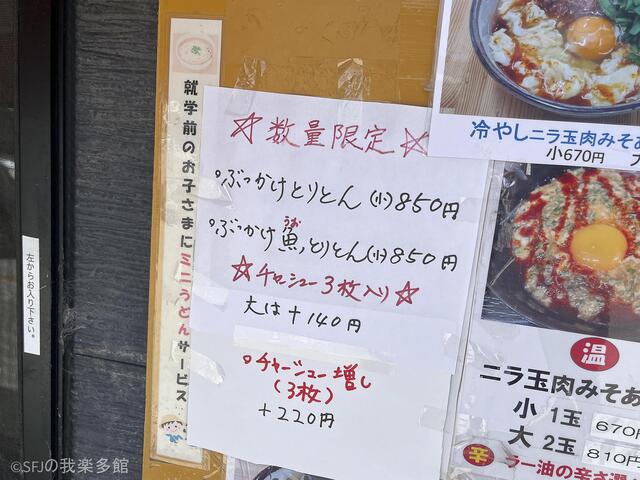 左からお入り下さい。
就学前のお子さまにミニうどんサービス
☆数量限定☆
・ぶっかけとりとん(小)850円
うお
・ぶっかけ魚、とりとん(小)850円
☆チャーシュー3枚入り☆
大は+140円
・チャーシュー増し
(3枚)
+220円
冷やしニラ玉肉みそあ
小670円
温
ニラ玉肉みそあ
小 1玉 670円
大 2玉 810円
辛 ラー油の辛さ選
©SFJの我楽多館